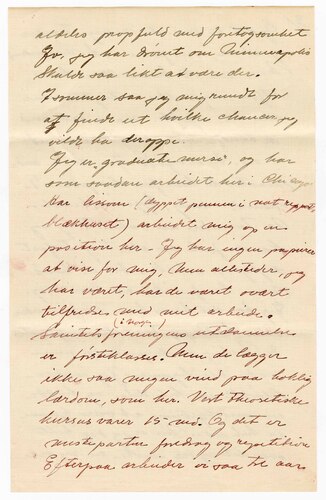 aldeles propfuld med foretagsomhet
Ja, jeg har drømt om Minneapolis
Skulde saa likt at være der.
I sommer saa jeg mig rundt for
at finde ut hvilke chancer, jeg
vilde ha deroppe.
Jeg er "graduate nurse", og har
som saadan arbeidet her i Chicago
har (dyppet pennen i
blækhuset) arbeidet mig op en
position her. Jeg har ingen papirer
at vise for mig, men allesteder, jeg
har været, har de været svært
tilfredse med mit arbeide.
(i Norge)
Sanitetsforeningens utdannelse
er førsteklasses. Men de lægger
ikke saa megen vind paa boklig
lærdom, som her. Vort theoretiske
kursus varer 15 md. Og det er
mesteparten foredrag og repetition
Efterpaa arbeider vi saa to aar